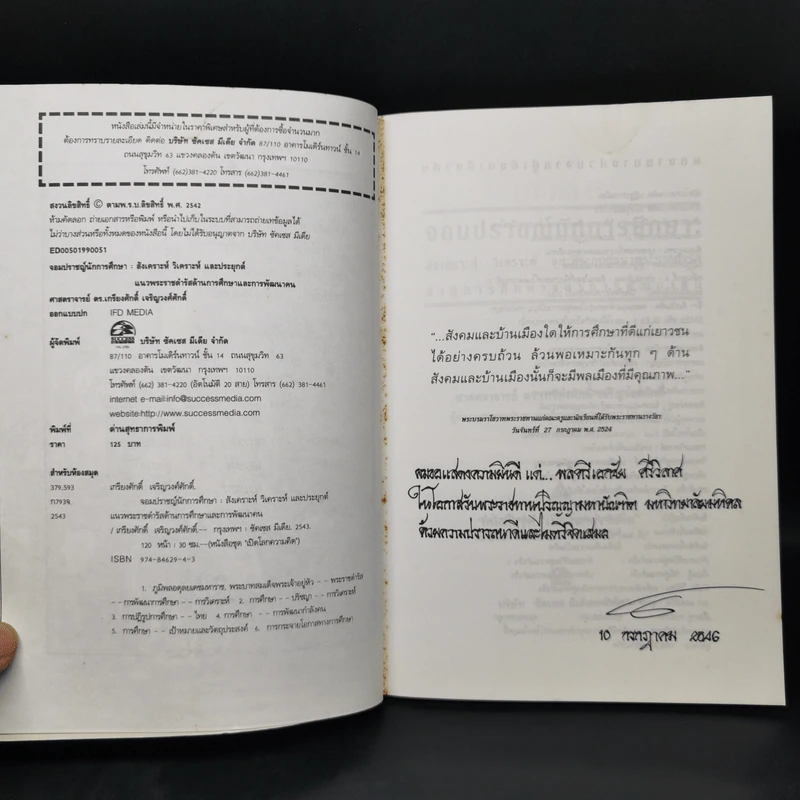 หนังสือเล่มนี้มีจำหน่ายในราคาพิเศษสำหรับผู้ที่ต้องการซื้อจำนวนมาก
ต้องการทราบรายละเอียด ติดต่อ บริษัท ซัคเซส มีเดีย จำกัด 87/110 อาคารโมเดิร์นทาวน์ ชั้น 14
ถนนสุขุมวิท 63 แขวงคลองตัน เขตวัฒนา กรุงเทพฯ 10110
โทรศัพท์ (662)381-4220 โทรสาร (662)381-4461
สงวนลิขสิทธิ์ © ตามพ.ร.บ.ลิขสิทธิ์ พ.ศ. 2542
ห้ามคัดลอก ถ่ายเอกสารหรือพิมพ์ หรือนำไปเก็บในระบบที่สามารถถ่ายเทข้อมูลได้
ไม่ว่าบางส่วนหรือทั้งหมดของหนังสือนี้ โดยไม่ได้รับอนุญาตจาก บริษัท ซัคเซส มีเดีย
ED00501990051
จอมปราชญ์นักการศึกษา : สังเคราะห์ วิเคราะห์ และประยุกต์
แนวพระราชดำรัสด้านการศึกษาและการพัฒนาคน
ศาสตราจารย์ ดร.เกรียงศักดิ์ เจริญวงศ์ศักดิ์
ออกแบบปก IFD MEDIA
ผู้จัดพิมพ์ SUCCESS บริษัท ซัคเซส มีเดีย จำกัด
87/110 อาคารโมเดิร์นทาวน์ ชั้น 14 ถนนสุขุมวิท 63
แขวงคลองตัน เขตวัฒนา กรุงเทพฯ 10110
โทรศัพท์ (662) 381-4220 (อัตโนมัติ 20 สาย) โทรสาร (662) 381-4461
internet e-mail:info@successmedia.com
website:http://www.successmedia.com
พิมพ์ที่ ด่านสุทธาการพิมพ์
ราคา 125 บาท
สำหรับห้องสมุด
379.593 เกรียงศักดิ์ เจริญวงศ์ศักดิ์.
ก793จ จอมปราชญ์นักการศึกษา : สังเคราะห์ วิเคราะห์ และประยุกต์
2543 แนวพระราชดำรัสด้านการศึกษาและการพัฒนาคน
/ เกรียงศักดิ์ เจริญวงศ์ศักดิ์.-- กรุงเทพฯ : ซัคเซส มีเดีย, 2543.
120 หน้า : 30 ซม.--(หนังสือชุด "เปิดโลกความคิด")
ISBN 974-84629-4-3
1. ภูมิพลอดุลยเดชมหาราช, พระบาทสมเด็จพระเจ้าอยู่หัว -- พระราชดำรัส
-- การพัฒนาการศึกษา -- การวิเคราะห์ 2. การศึกษา -- ปรัชญา -- การวิเคราะห์
3. การปฏิรูปการศึกษา -- ไทย 4. การศึกษา -- การพัฒนากำลังคน
5. การศึกษา -- เป้าหมายและวัตถุประสงค์ 6. การกระจายโอกาสทางการศึกษา
"...สังคมและบ้านเมืองใดให้การศึกษาที่ดีแก่เยาวชน
ได้อย่างครบถ้วน ล้วนพอเหมาะกันทุก ๆ ด้าน
สังคมและบ้านเมืองนั้นก็จะมีพลเมืองที่มีคุณภาพ..."
พระบรมราโชวาทพระราชทานแก่คณะครูและนักเรียนที่ได้รับพระราชทานรางวัลฯ
วันจันทร์ที่ 27 กรกฎาคม พ.ศ. 2524
ผมขอแสดงความยินดี แด่... พลตรีเอกชัย ศรีวิลาศ
ในโอกาสวันพระราชทานปริญญามหาบัณฑิต มหาวิทยาลัยมหิดล
ด้วยความปรารถนาดีและไมตรีจิตเสมอ
10 กรกฎาคม 2546